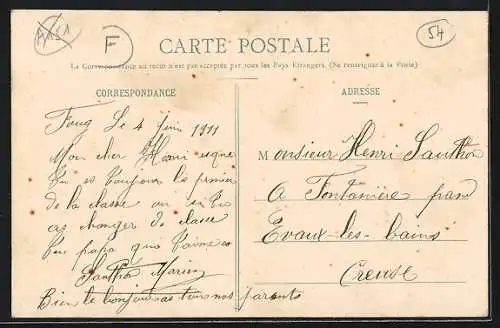 F
54
CARTE POSTALE
La Correspondance au recto n'est pas acceptée par tous les Pays Etrangers. (Se renseigner à la Poste)
CORRESPONDANCE
Foug Le 4 Juin 1911
Mon cher Henri
tu es toujours le premier
de la classe ou si tu
as changer de classe
ton papa qui t'aime
Santhon
Bien le bonjour a tous nos parents
ADRESSE
Monsieur Henri Santhon
A Fontanière par
Evaux-les-bains
Creuse